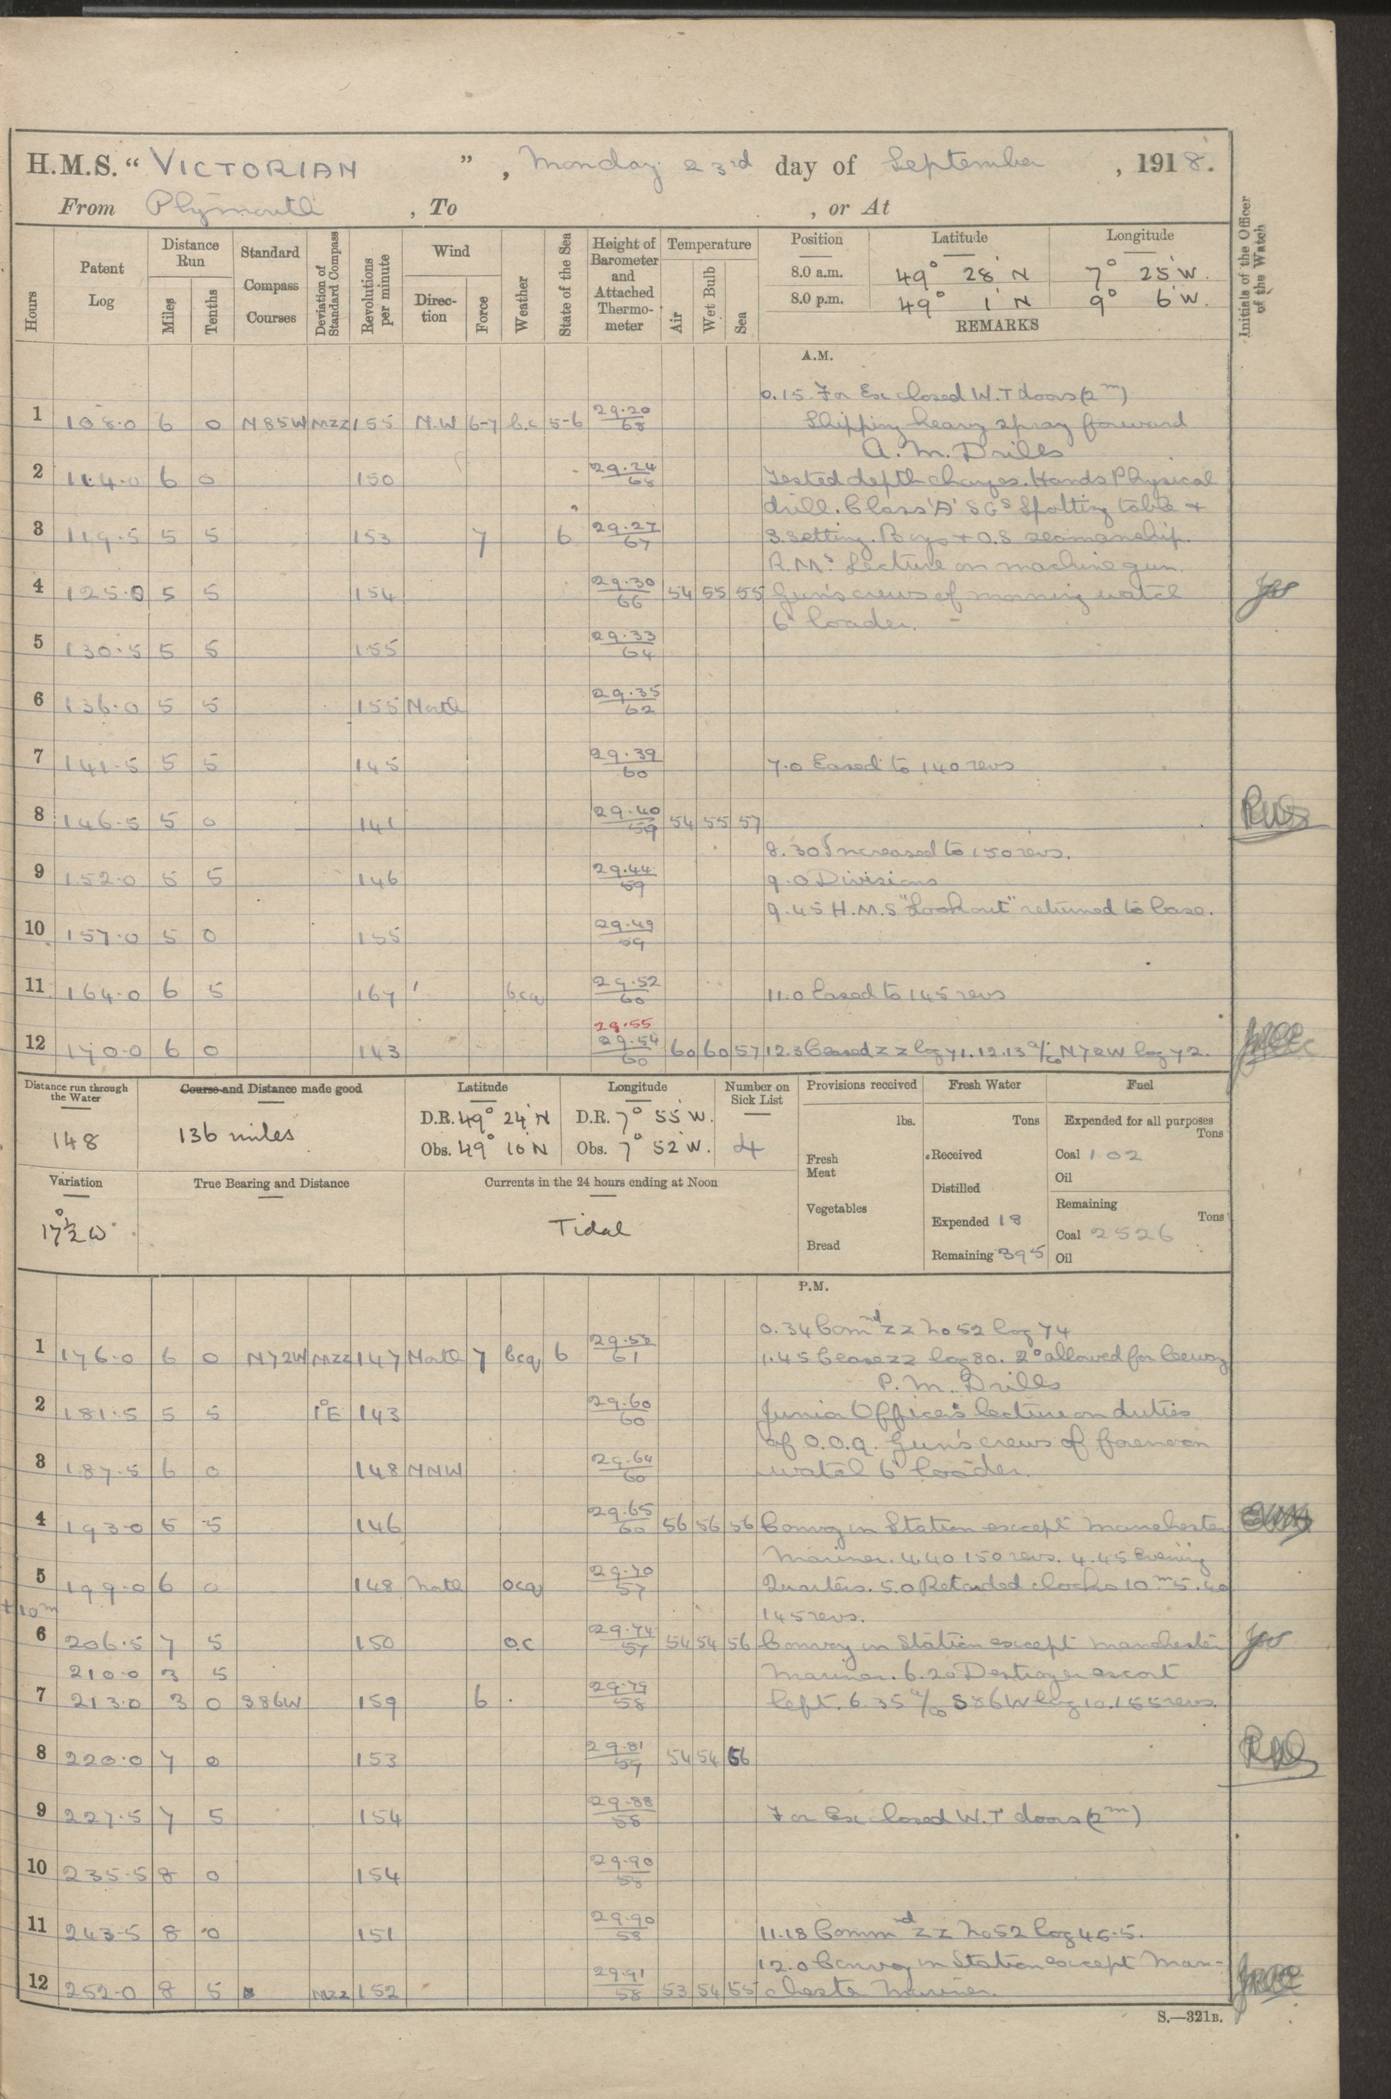 H.M.S. “VICTORIAN”, Monday 23rd day of September, 1918.
From Plymouth, To , or At
Initials of the Officer of the Watch
Hours
Patent Log
Distance Run
Miles
Tenths
Standard Compass Courses
Deviation of Standard Compass
Revolutions per minute
Wind
Direction
Force
Weather
State of the Sea
Height of Barometer and Attached Thermometer
Temperature
Air
Wet Bulb
Sea
Position Latitude Longitude
8.0 a.m. 49° 28' N 7° 25' W.
8.0 p.m. 49° 1' N 9° 6' W.
REMARKS
A.M.
0.15. For Ex closed W.T doors (2m)
1 108.0 6 0 N85W MZZ 155 N.W 6-7 b.c 5-6 29.20/68 Shipping heavy spray forward
A.M. Drills
2 114.0 6 0 150 29.24/68 Tested depth charges. Hands Physical
drill. Class 'A' SGs Spotting table +
3 119.5 5 5 153 7 6 29.27/67 S.setting. Boys + O.S seamanship.
R.Ms Lecture on machine gun.
4 125.0 5 5 154 29.30/66 54 55 55 Gun's crews of morning watch
6" loader.
5 130.5 5 5 155 29.33/64
6 136.0 5 5 155 North 29.35/62
7 141.5 5 5 145 29.39/60 7.0 Eased to 140 revs
8 146.5 5 0 141 29.40/59 54 55 57
8.30 Increased to 150 revs.
9 152.0 5 5 146 29.44/59 9.0 Divisions
9.45 H.M.S "Lookout" returned to base.
10 157.0 5 0 155 29.49/59
11 164.0 6 5 167 bcq 29.52/60 11.0 Eased to 145 revs
29.55
12 170.0 6 0 143 29.54/60 60 60 57 12.3 Ceased ZZ log 71. 12.13 a/c N72W log 72.
Distance run through the Water
148
Course and Distance made good
136 miles
Latitude
D.R. 49° 24' N
Obs. 49° 10' N
Longitude
D.R. 7° 55' W.
Obs. 7° 52' W.
Number on Sick List
4
Provisions received
lbs.
Fresh Meat
Vegetables
Bread
Fresh Water
Tons
Received
Distilled
Expended 18
Remaining 395
Fuel
Expended for all purposes
Tons
Coal 102
Oil
Remaining
Tons
Coal 2526
Oil
Variation
17½° W
True Bearing and Distance
Currents in the 24 hours ending at Noon
Tidal
P.M.
0.34 Comnd ZZ No 52 log 74
1 176.0 6 0 N72W MZZ 147 North 7 bcq 6 29.58/61 1.45 Cease ZZ log 80. 2° allowed for leeway
P.M. Drills
2 181.5 5 5 1°E 143 29.60/60 Junior Officers lecture on duties
of O.O.Q. Gun's crews of forenoon
3 187.5 6 0 148 NNW 29.64/60 watch 6" loader.
4 193.0 5 5 146 29.65/60 56 56 56 Convoy in Station except Manchester
Mariner. 4.40 150 revs. 4.45 Evening
5 199.0 6 0 148 North ocq 29.70/57 Quarters. 5.0 Retarded clocks 10m. 5.40
+10m 145 revs.
6 206.5 7 5 150 o.c 29.74/57 54 54 56 Convoy in Station except Manchester
210.0 3 5 Mariner. 6.20 Destroyer escort
7 213.0 3 0 S86W 159 6 29.79/58 left. 6.35 a/c S86W log 10. 155 revs.
8 220.0 7 0 153 29.81/59 54 54 56
9 227.5 7 5 154 29.88/58 For Ex closed W.T doors (2m)
10 235.5 8 0 154 29.90/58
11 243.5 8 0 151 29.90/58 11.18 Commd ZZ No 52 log 46.5.
12.0 Convoy in Station except Man-
12 252.0 8 5 MZZ 152 29.91/58 53 54 55 chester Mariner.
S.—321B.